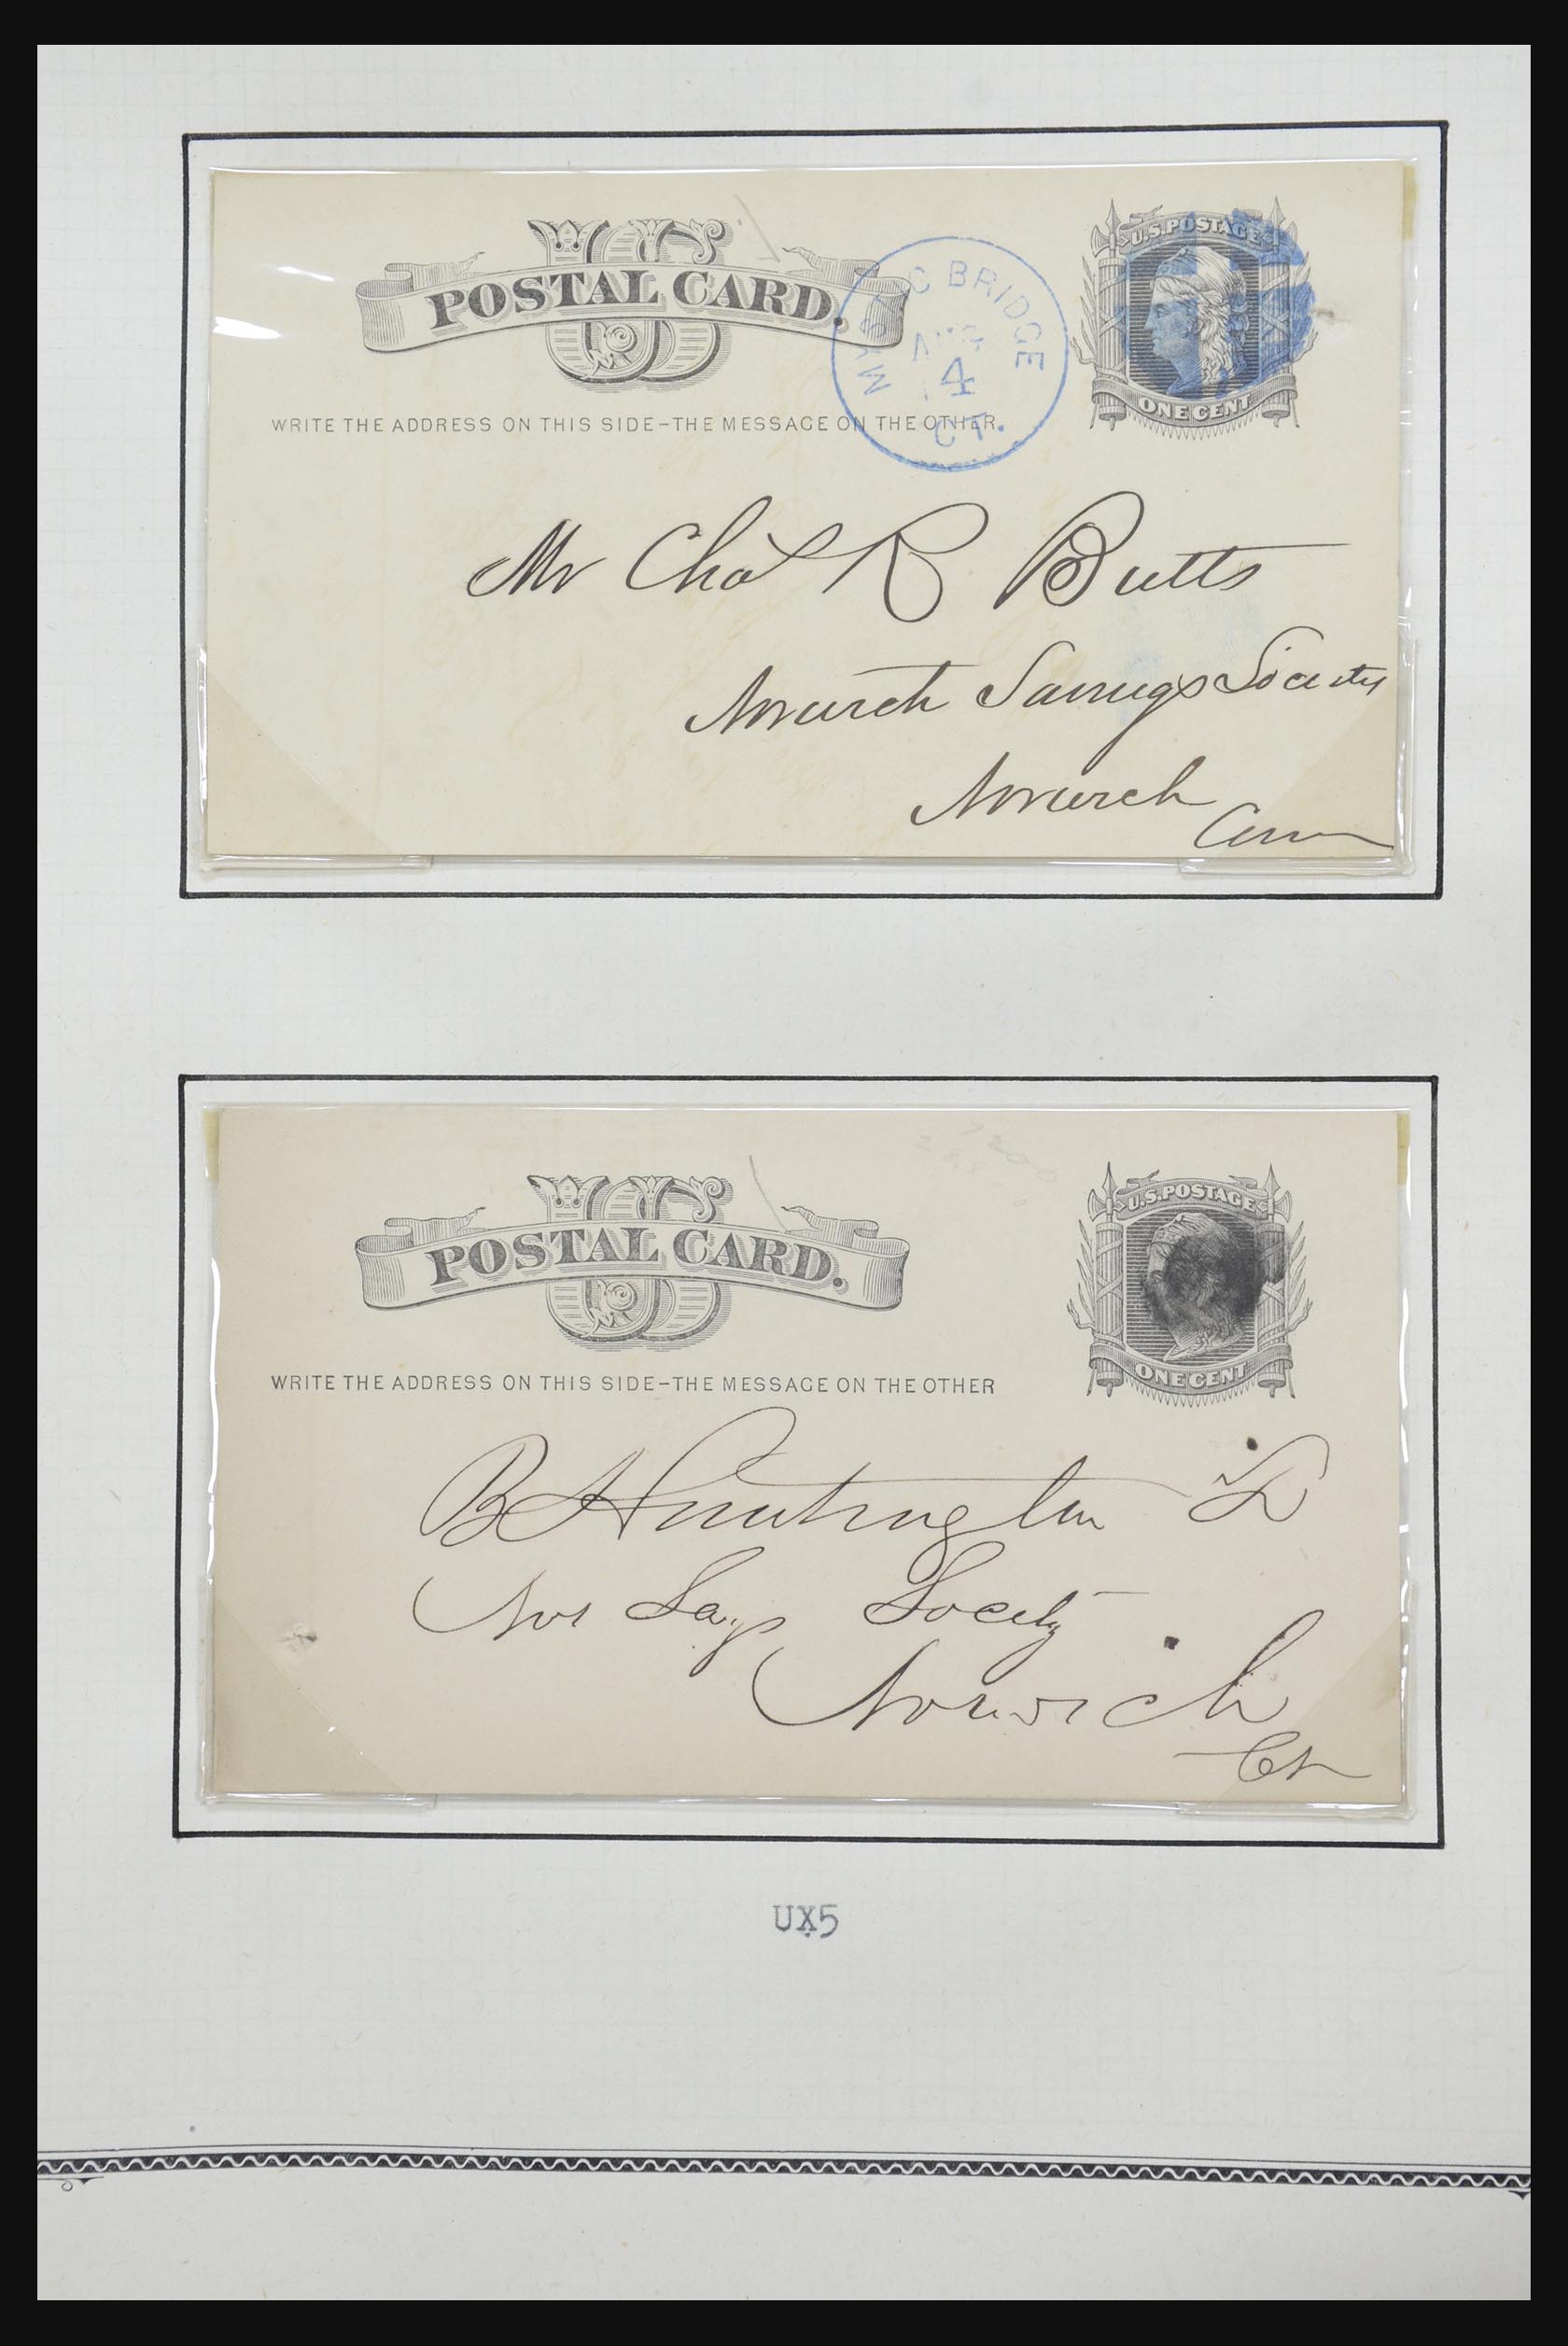 POSTAL CARD.
U.S. POSTAGE
ONE CENT
MYSTIC BRIDGE
AUG
4
CT.
WRITE THE ADDRESS ON THIS SIDE-THE MESSAGE ON THE OTHER
Mr Chas R Butts
Norwich Savings Society
Norwich
Conn
POSTAL CARD.
U.S. POSTAGE
ONE CENT
WRITE THE ADDRESS ON THIS SIDE-THE MESSAGE ON THE OTHER
B Huntington
Nor Savgs Society
Norwich
Ct
UX5